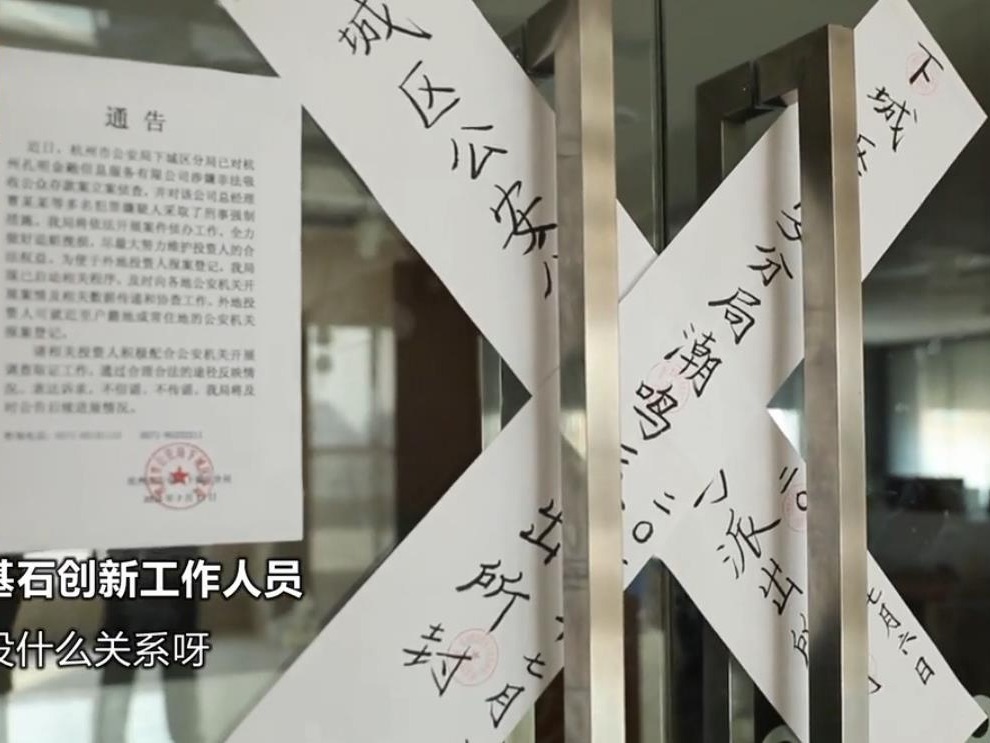 通告
近日，杭州市公安局下城区分局已对杭
州孔明金融信息服务有限公司涉嫌非法吸
收公众存款案立案侦查，并对该公司总经理
曹某某等多名犯罪嫌疑人采取了刑事强制
措施。我局将依法开展案件侦办工作，全力
做好追赃挽损，尽最大努力维护投资人的合
法权益。为便于外地投资人报案登记，我局
现已启动相关程序，及时向各地公安机关开
展案情及相关数据传递和协查工作，外地投
资人可就近至户籍地或常住地的公安机关
报案登记。
请相关投资人积极配合公安机关开展
调查取证工作，通过合理合法的途径反映情
况、表达诉求，不信谣、不传谣，我局将及
时公告后续进展情况。
城区公安
派出
二〇
七月六日
下城
分局潮鸣
出所
封
二〇
七月
基石创新工作人员
没什么关系呀